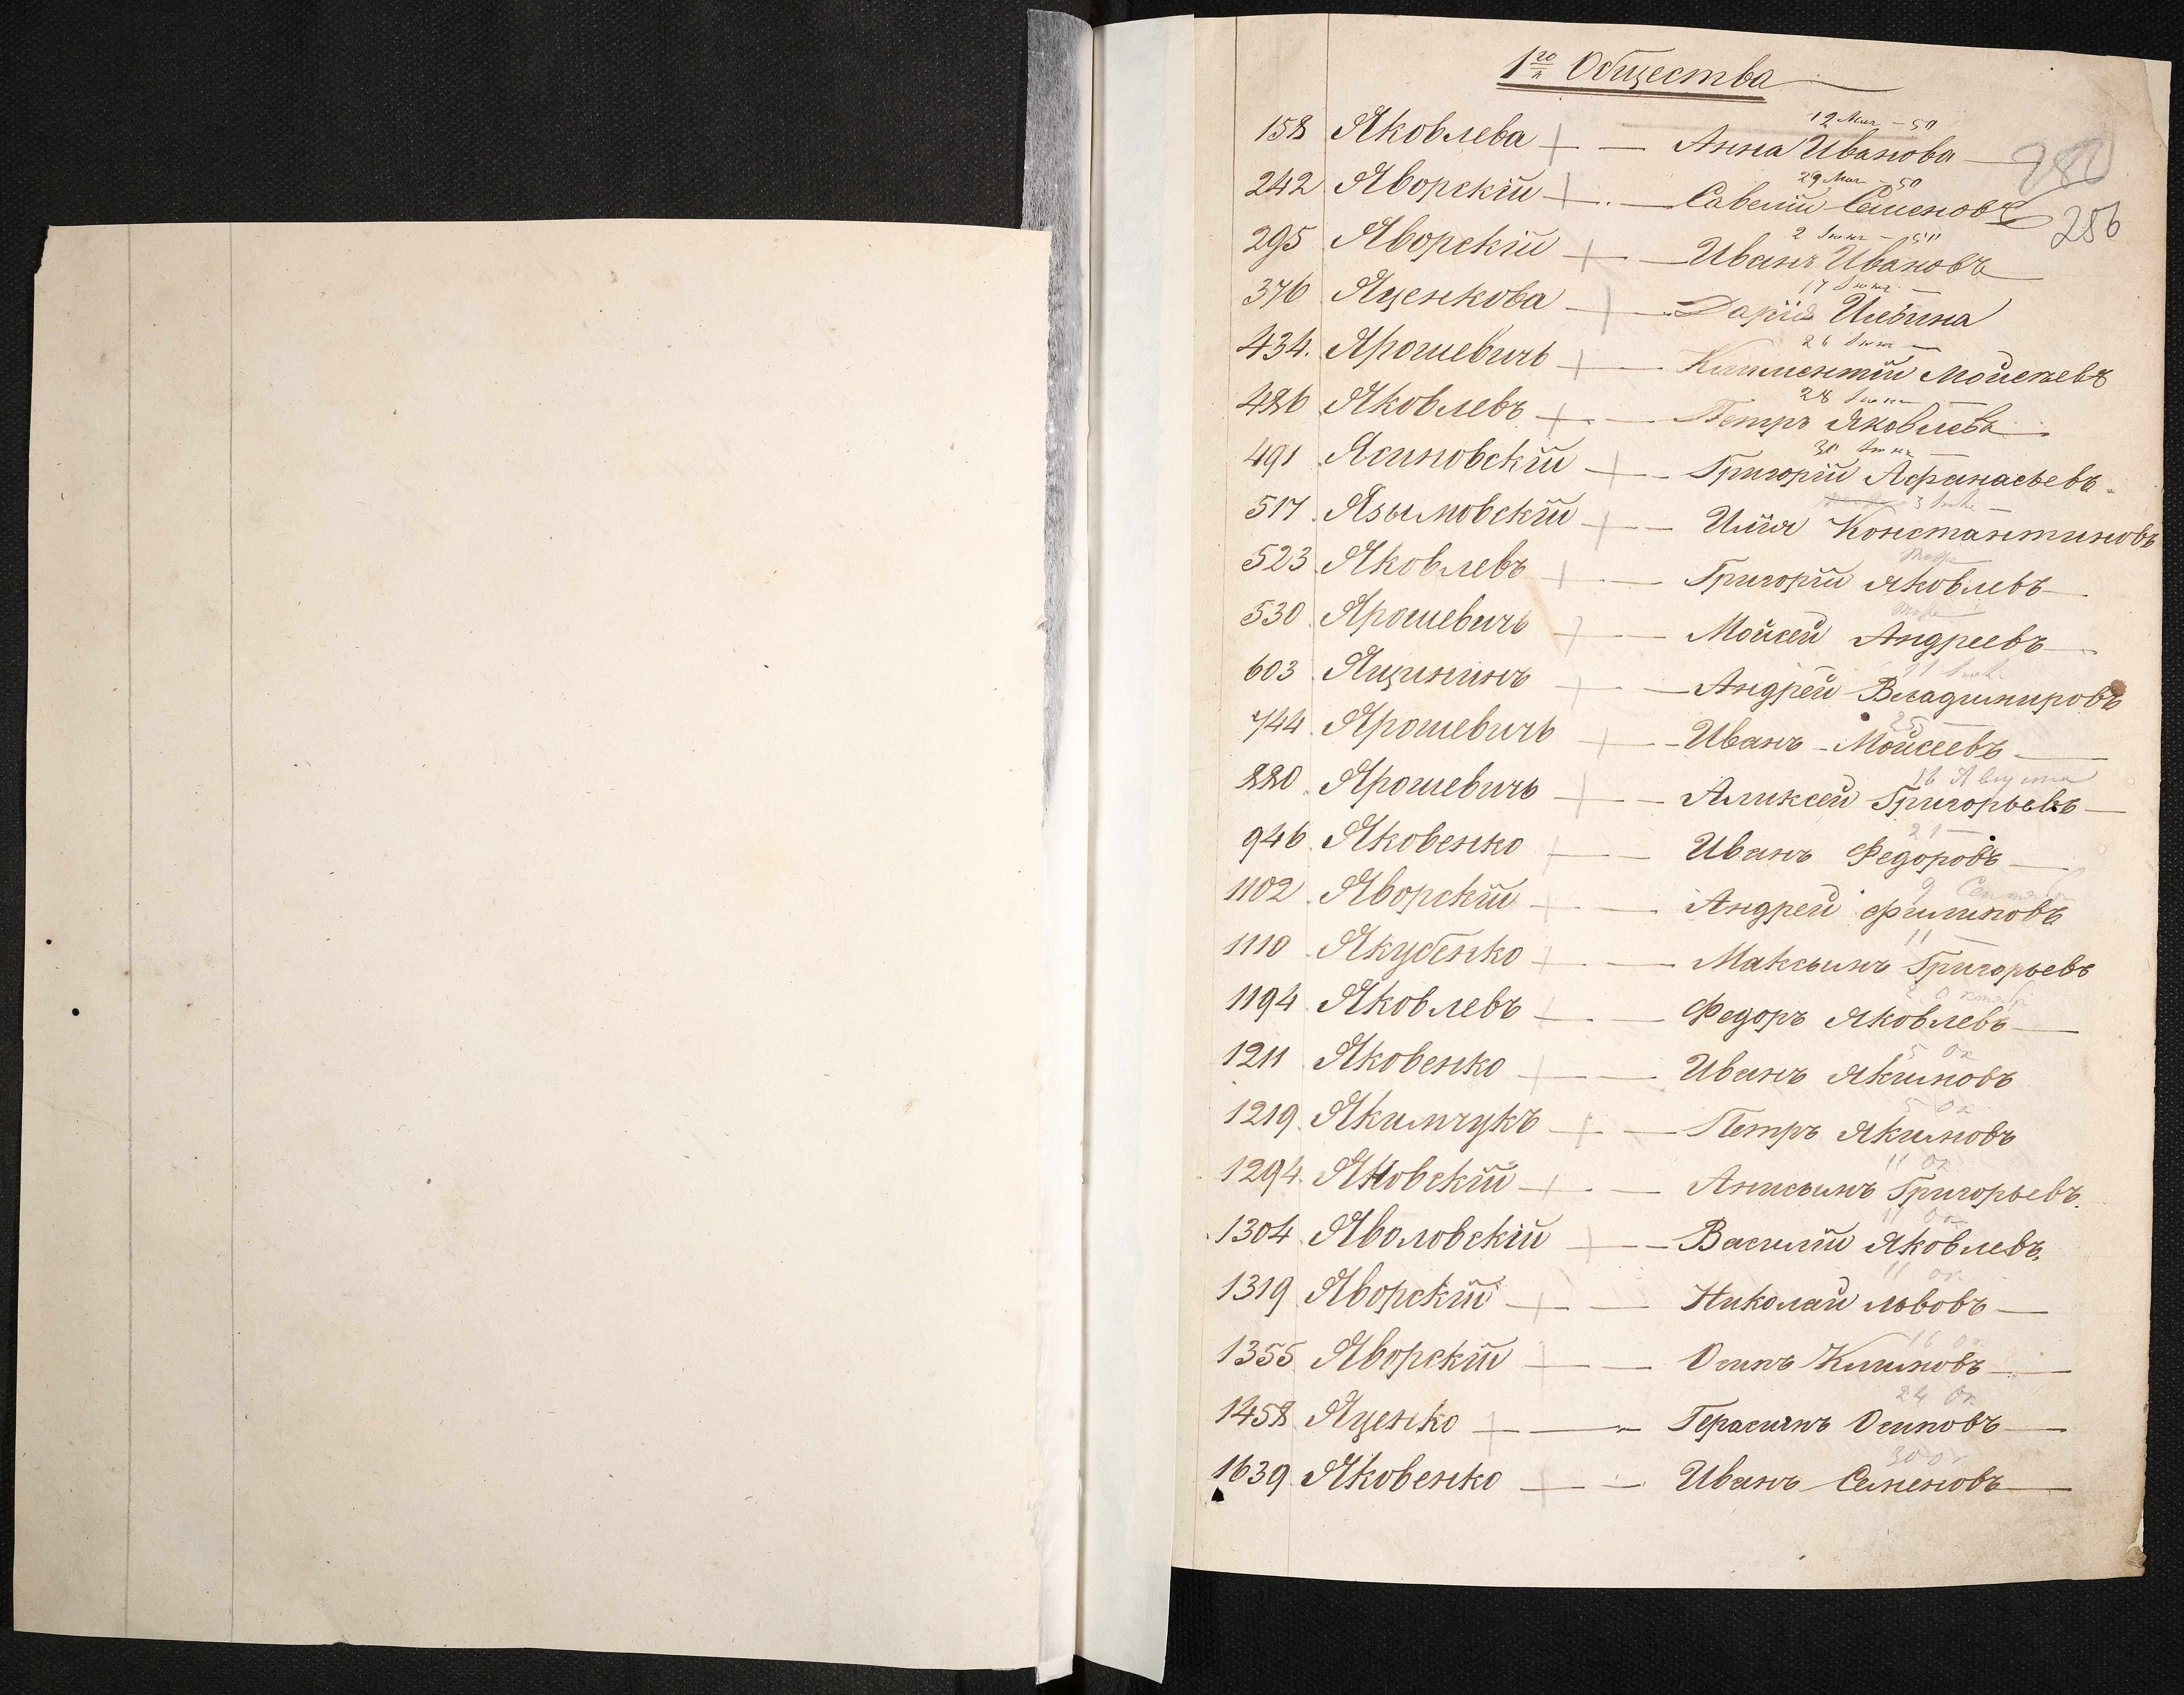 1го Общества
12 Мая - 50
158 Яковлева — Анна Иванова
280
29 Мая - 50
242 Яворскій — Савелій Семеновъ
286
2 Іюня - 50
295 Яворскій — Иванъ Ивановъ
17 Іюня
376 Яценкова — Дарія Ильина
26 Іюня —
434. Ярошевичь — Климентій Мойсеевъ
28 Іюня —
486 Яковлевъ — Петръ Яковлевъ
30 Іюня —
491 Ясиновскій — Григорій Афанасьевъ
3
517 Язымовскій — Илія Константиновъ
523 Яковлевъ — Григорій Яковлевъ
530 Ярошевичь — Мойсей Андреевъ
21
603 Ящининъ — Андрей Владимировъ
25 —
744 Ярошевичь — Иванъ Мойсеевъ
16 Августа
880 Ярошевичь — Аликсей Григорьевъ
21 —
946 Яковенко — Иванъ Федоровъ
9
1102 Яворскій — Андрей Филиповъ
11 —
1110 Якубенко — Максымъ Григорьевъ
2 Октяб
1194 Яковлевъ — Федоръ Яковлевъ
5 Ок
1211 Яковенко — Иванъ Якимовъ
5 Ок
1219 Якимчукъ — Петръ Якимовъ
11 Ок
1294 Яновскій — Анисымъ Григорьевъ
11 Ок
1304 Яволовскій — Василій Яковлевъ
11 Ок
1319 Яворскій — Николай Львовъ
16 Ок
1355 Яворскій — Осипъ Климовъ
24 Ок
1458 Яценко — Герасимъ Осиповъ
30 Ок
1639 Яковенко — Иванъ Семеновъ